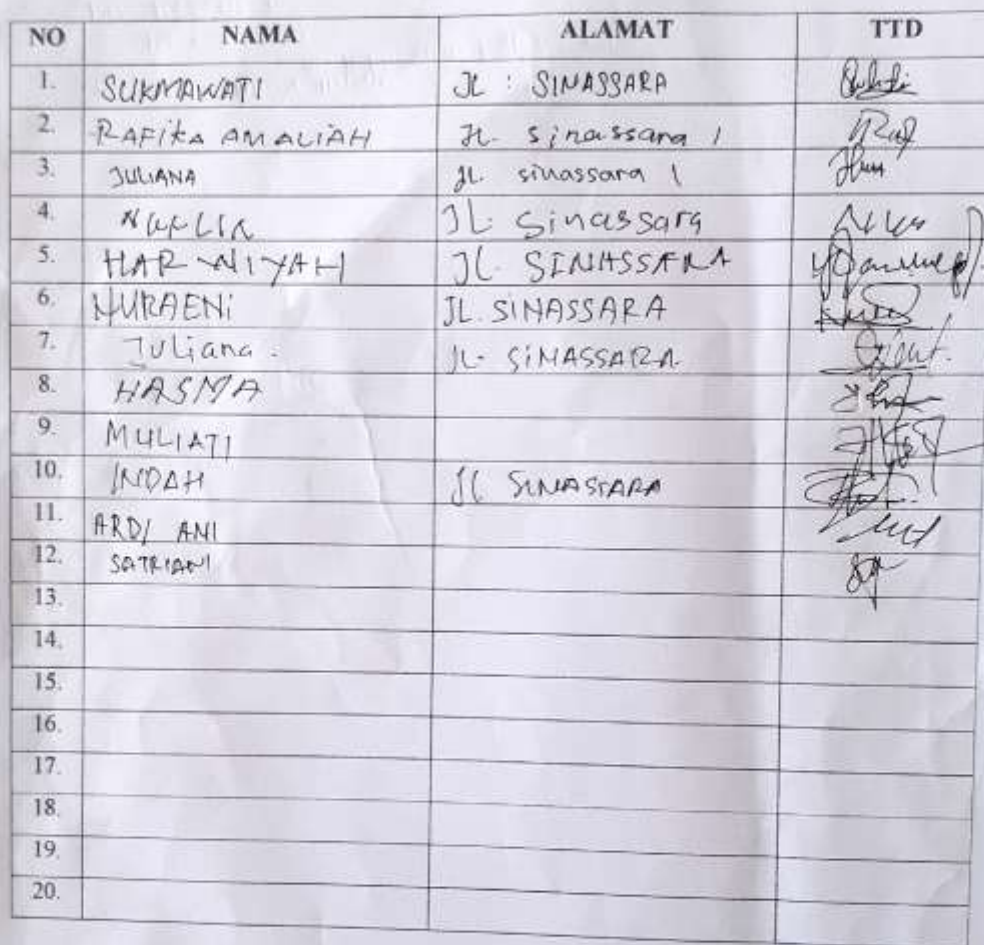 NO NAMA ALAMAT TTD
1. SUKMAWATI JL : SINASSARA
2. RAFIKA AMALIAH JL. Sinassara 1
3. JULIANA JL. sinassara 1
4. JL. Sinassara
5. HAR WIYAH JL. SINASSARA
6. NURAENI JL. SINASSARA
7. Juliana. JL. SINASSARA
8. HASMA
9. MULIATI
10. INDAH JL SINASSARA
11. ARDI ANI
12. SATRIANI
13.
14.
15.
16.
17.
18.
19.
20.